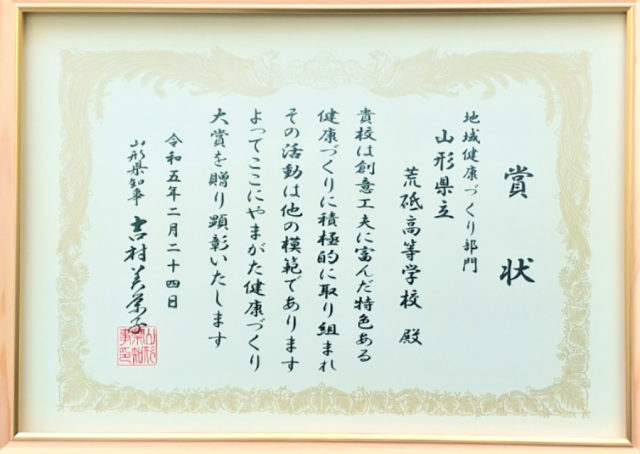 賞状
地域健康づくり部門
山形県立
荒砥高等学校 殿
貴校は創意工夫に富んだ特色ある
健康づくりに積極的に取り組まれ
その活動は他の模範であります
よってここにやまがた健康づくり
大賞を贈り顕彰いたします
令和五年二月二十四日
山形県知事 吉村美栄子